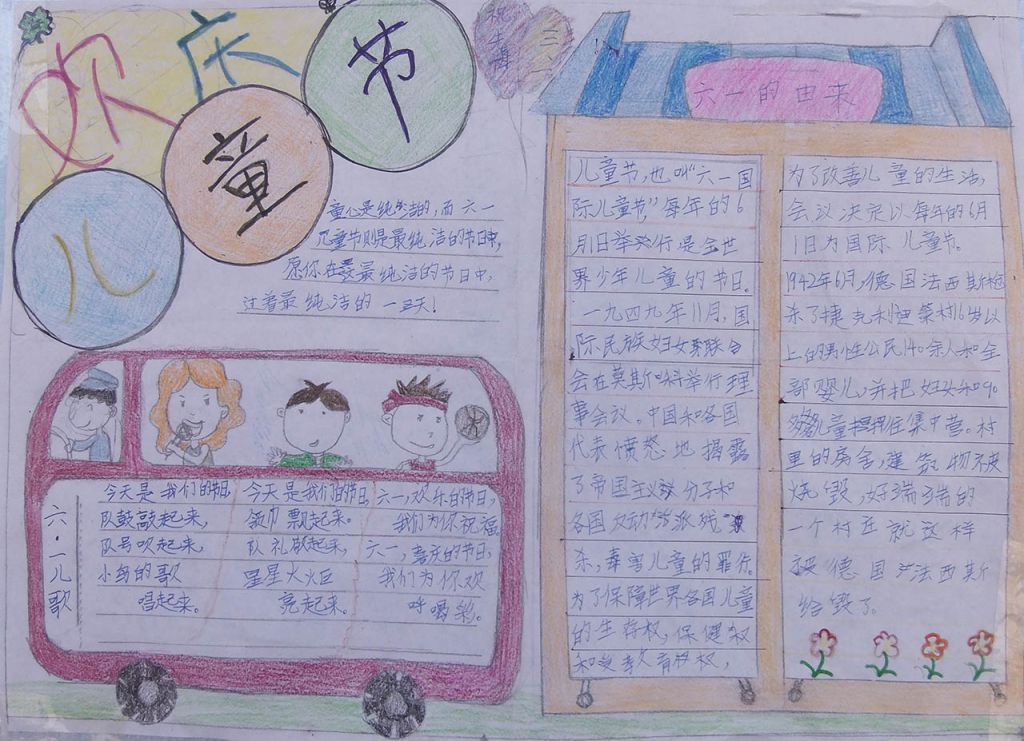 欢庆
儿童节
童心是纯洁的,而六一
儿童节则是最纯洁的节日
愿你在最最纯洁的节日中,
过着最纯洁的一天!
六·一儿歌
今天是我们的节日,
队鼓敲起来,
队号吹起来,
小的歌
唱起来。
今天是我们的节日,
领巾飘起来。
队礼敬起来,
星星火炬
亮起来。
六一,欢乐的节日,
我们为你祝福。
六一,喜庆的节日,
我们为你欢
呼喝彩。
六一的由来
儿童节,也叫“六一国
际儿童节”每年的6
月1日举行是全世
界少年儿童的节日。
一九四九年11月,国
际民族妇女联合
会在莫斯科举行理
事会议。中国和各国
代表愤怒地揭露
了帝国主义分子和
各国反动派残
杀,毒害儿童的罪行。
为了保障世界各国儿童
的生存权,保健权
和受教育权,
为了改善儿童的生活,
会议决定以每年的6月
1日为国际儿童节。
1942年6月,德国法西斯枪
杀了捷克利迪策村16岁以
上的男性公民140余人和全
部婴儿,并把妇女和90
多儿童押往集中营。村
里的房舍,建筑物被
烧毁,好端端的
一个村庄就这样
被德国法西斯
给毁了。